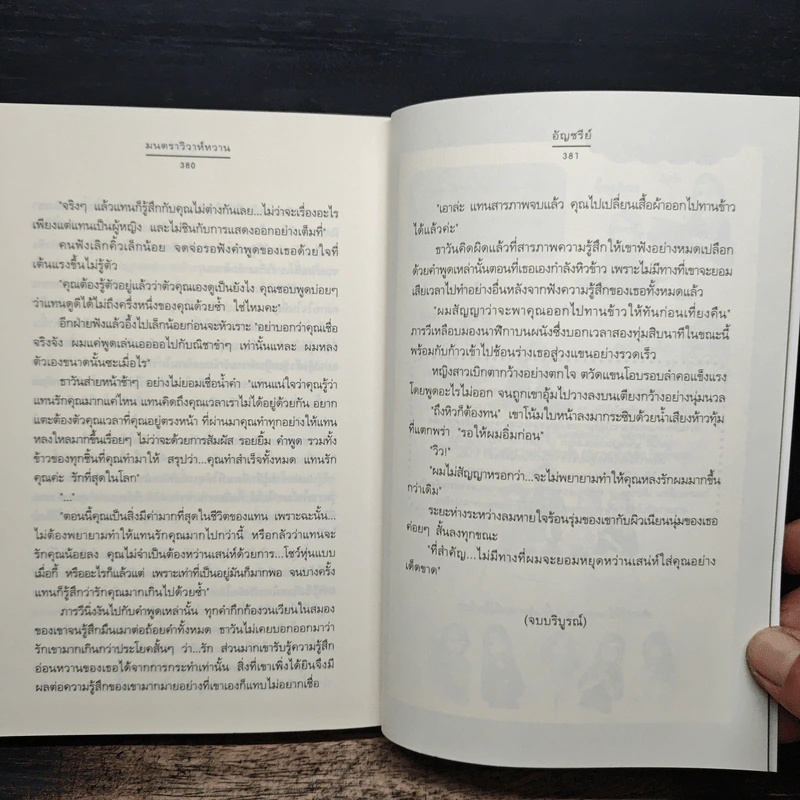 มนตราวิวาห์หวาน
380
"จริงๆ แล้วแทนก็รู้สึกกับคุณไม่ต่างกันเลย...ไม่ว่าจะเรื่องอะไร
เพียงแต่แทนเป็นผู้หญิง และไม่ชินกับการแสดงออกอย่างเต็มที่"
คนฟังเลิกคิ้วเล็กน้อย จดจ่อรอฟังคำพูดของเธอด้วยใจที่
เต้นแรงขึ้นไม่รู้ตัว
"คุณต้องรู้ตัวอยู่แล้วว่าตัวคุณเองดูเป็นยังไง คุณชอบพูดบ่อยๆ
ว่าแทนดูดีได้ไม่ถึงครึ่งหนึ่งของคุณด้วยซ้ำ ใช่ไหมคะ"
อีกฝ่ายฟังแล้วอึ้งไปเล็กน้อยก่อนจะหัวเราะ "อย่าบอกว่าคุณเชื่อ
จริงจัง ผมแค่พูดเล่นเออออไปกับณิชาขำๆ เท่านั้นแหละ ผมหลง
ตัวเองขนาดนั้นซะเมื่อไร"
ธาวันส่ายหน้าช้าๆ อย่างไม่ยอมเชื่อน้ำคำ "แทนแน่ใจว่าคุณรู้ว่า
แทนรักคุณมากแค่ไหน แทนคิดถึงคุณเวลาเราไม่ได้อยู่ด้วยกัน อยาก
แตะต้องตัวคุณเวลาที่คุณอยู่ตรงหน้า ที่ผ่านมาคุณทำทุกอย่างให้แทน
หลงใหลมากขึ้นเรื่อยๆ ไม่ว่าจะด้วยการสัมผัส รอยยิ้ม คำพูด รวมทั้ง
ข้าวของทุกชิ้นที่คุณทำมาให้ สรุปว่า...คุณทำสำเร็จทั้งหมด แทนรัก
คุณค่ะ รักที่สุดในโลก"
"..."
"ตอนนี้คุณเป็นสิ่งมีค่ามากที่สุดในชีวิตของแทน เพราะฉะนั้น...
ไม่ต้องพยายามทำให้แทนรักคุณมากไปกว่านี้ หรือกลัวว่าแทนจะ
รักคุณน้อยลง คุณไม่จำเป็นต้องหว่านเสน่ห์ด้วยการ...โชว์หุ่นแบบ
เมื่อกี้ หรืออะไรก็แล้วแต่ เพราะเท่าที่เป็นอยู่มันก็มากพอ จนบางครั้ง
แทนก็รู้สึกว่ารักคุณมากเกินไปด้วยซ้ำ"
ภารวีนิ่งงันไปกับคำพูดเหล่านั้น ทุกคำกึกก้องวนเวียนในสมอง
ของเขาจนรู้สึกมึนเมาต่อถ้อยคำทั้งหมด ธาวันไม่เคยบอกออกมาว่า
รักเขามากเกินกว่าประโยคสั้นๆ ว่า...รัก ส่วนมากเขารับรู้ความรู้สึก
อ่อนหวานของเธอได้จากการกระทำเท่านั้น สิ่งที่เขาเพิ่งได้ยินจึงมี
ผลต่อความรู้สึกของเขามากมายอย่างที่เขาเองก็แทบไม่อยากเชื่อ
อัญชรีย์
381
"เอาล่ะ แทนสารภาพจบแล้ว คุณไปเปลี่ยนเสื้อผ้าออกไปทานข้าว
ได้แล้วค่ะ"
ธาวันคิดผิดแล้วที่สารภาพความรู้สึกให้เขาฟังอย่างหมดเปลือก
ด้วยคำพูดเหล่านั้นตอนที่เธอเองกำลังหิวข้าว เพราะไม่มีทางที่เขาจะยอม
เสียเวลาไปทำอย่างอื่นหลังจากฟังความรู้สึกของเธอทั้งหมดแล้ว
"ผมสัญญาว่าจะพาคุณออกไปทานข้าวให้ทันก่อนเที่ยงคืน"
ภารวีเหลือบมองนาฬิกาบนผนังซึ่งบอกเวลาสองทุ่มสิบนาทีในขณะนี้
พร้อมกับก้าวเข้าไปช้อนร่างเธอสู่วงแขนอย่างรวดเร็ว
หญิงสาวเบิกตากว้างอย่างตกใจ ตวัดแขนโอบรอบลำคอแข็งแรง
โดยพูดอะไรไม่ออก จนถูกเขาอุ้มไปวางลงบนเตียงกว้างอย่างนุ่มนวล
"ถึงหิวก็ต้องทน" เขาโน้มใบหน้าลงมากระซิบด้วยน้ำเสียงห้าวทุ้ม
ที่แตกพร่า "รอให้ผมอิ่มก่อน"
"วิว!"
"ผมไม่สัญญาหรอกว่า...จะไม่พยายามทำให้คุณหลงรักผมมากขึ้น
กว่าเดิม"
ระยะห่างระหว่างลมหายใจร้อนรุ่มของเขากับผิวเนียนนุ่มของเธอ
ค่อยๆ สั้นลงทุกขณะ
"ที่สำคัญ...ไม่มีทางที่ผมจะยอมหยุดหว่านเสน่ห์ใส่คุณอย่าง
เด็ดขาด"
(จบบริบูรณ์)